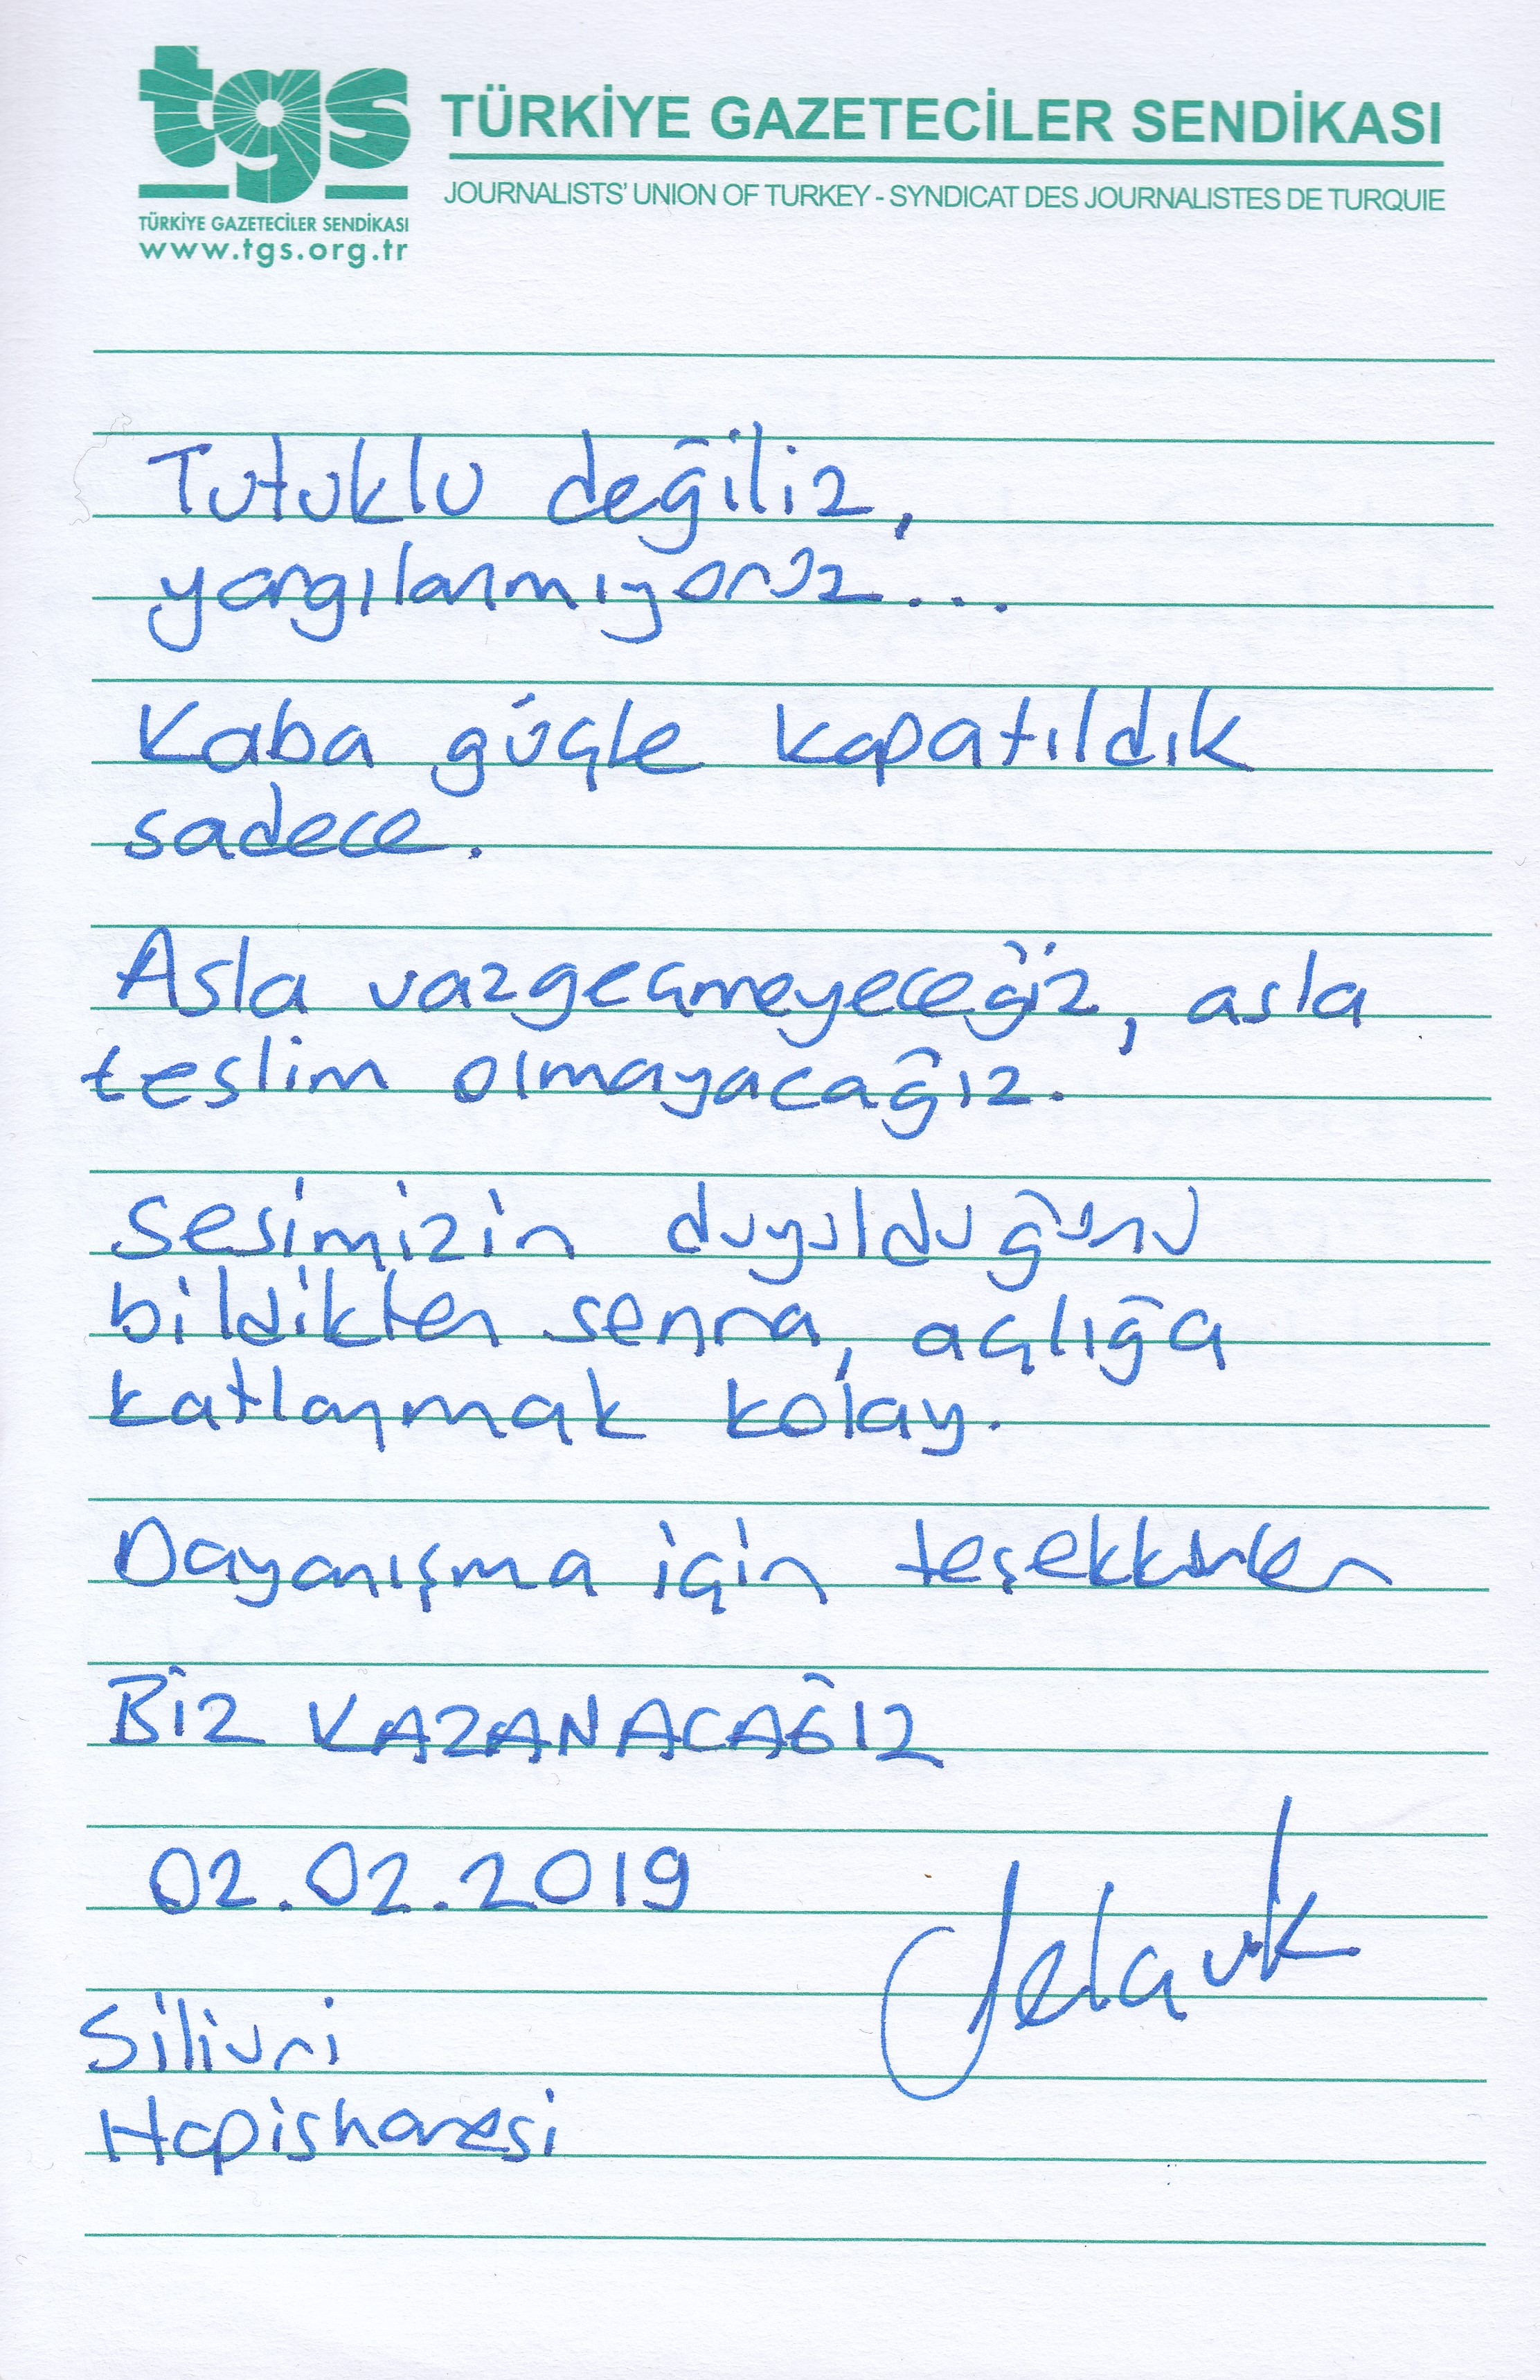 tgs
TÜRKİYE GAZETECİLER SENDİKASI
www.tgs.org.tr
TÜRKİYE GAZETECİLER SENDİKASI
JOURNALISTS' UNION OF TURKEY - SYNDICAT DES JOURNALISTES DE TURQUIE
Tutuklu değiliz,
yargılanmıyoruz...
Kaba güçle kapatıldık
sadece.
Asla vazgeçmeyeceğiz, asla
teslim olmayacağız.
Sesimizin duyulduğunu
bildikten sonra, açlığa
katlanmak kolay.
Dayanışma için teşekkürler
BİZ KAZANACAĞIZ
02.02.2019
Silivri
Hapishanesi